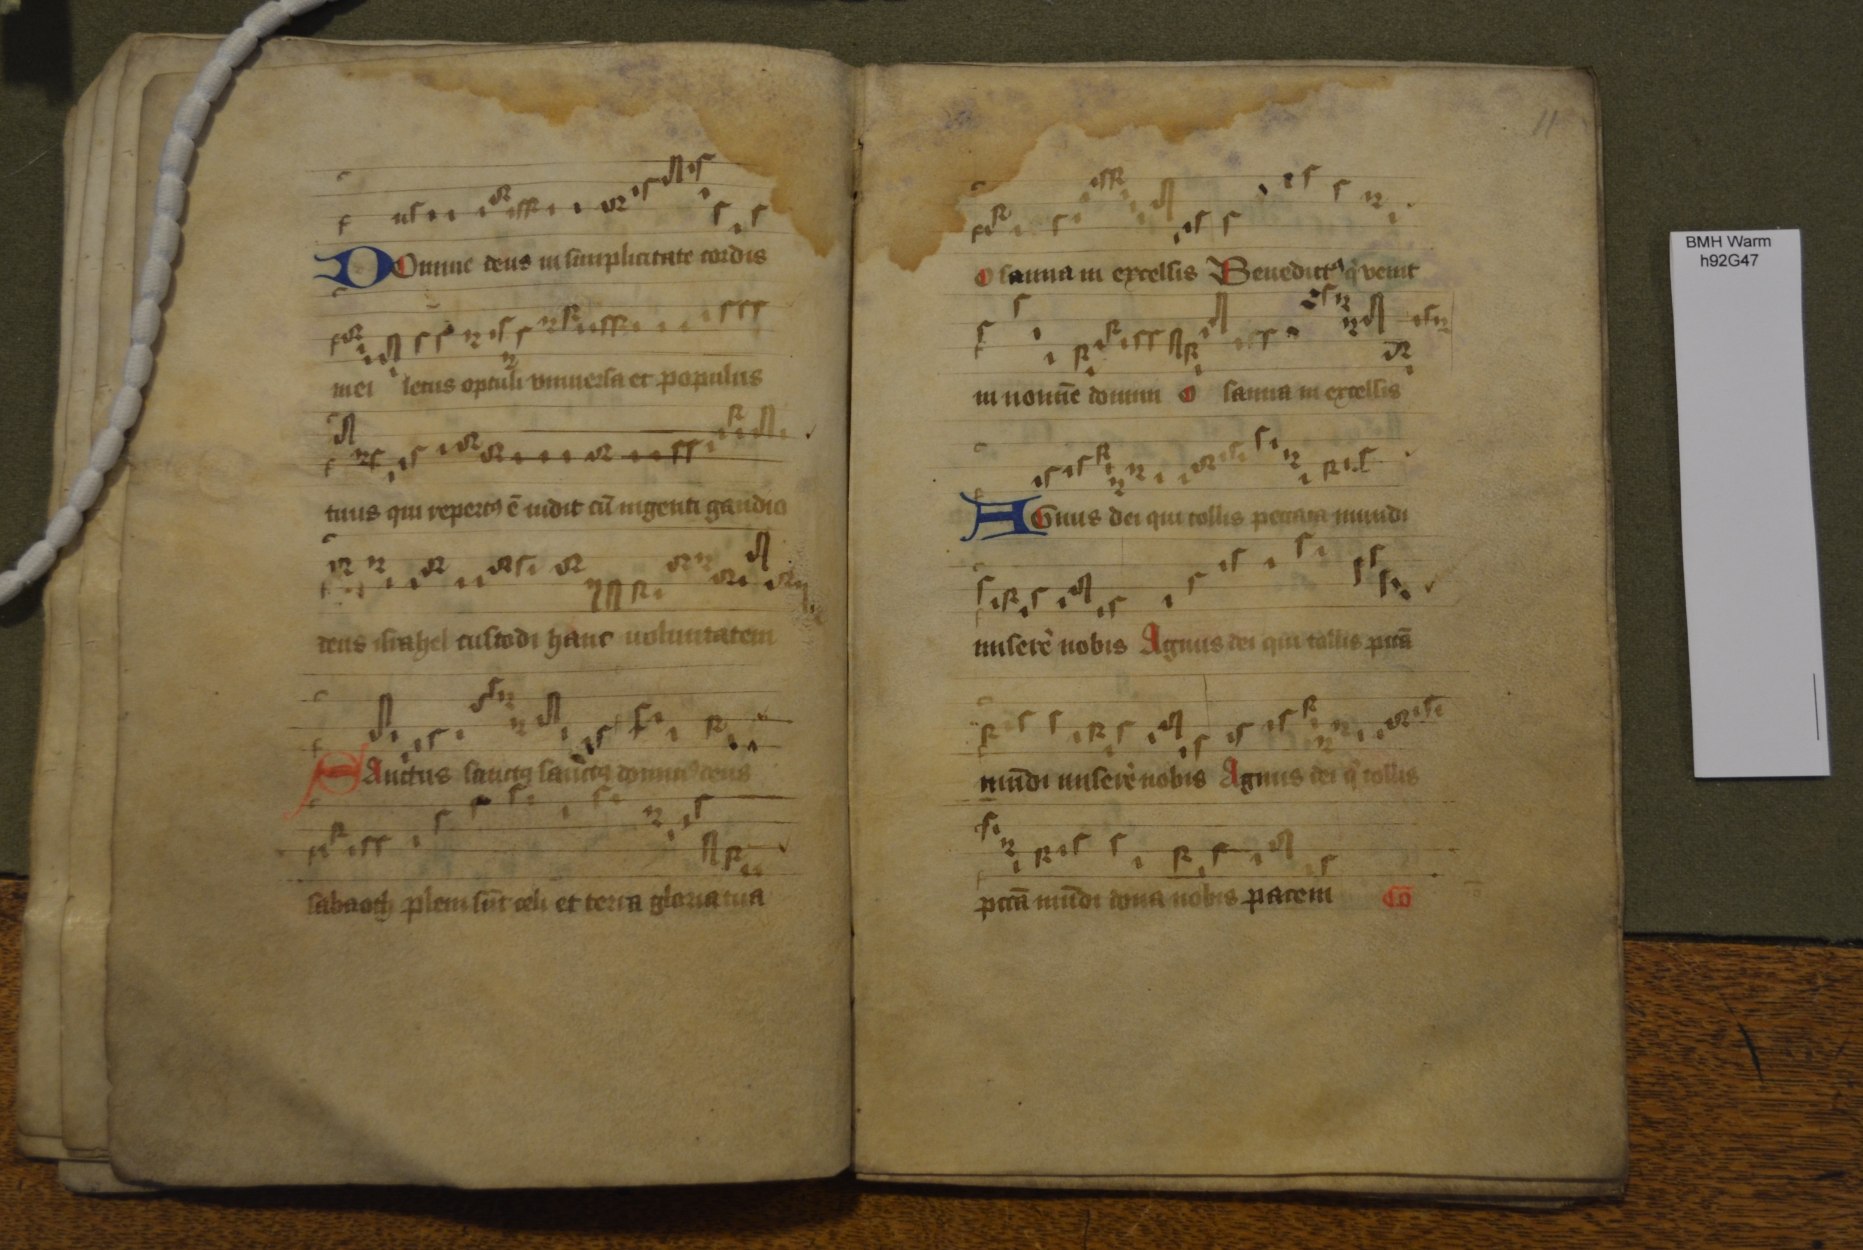 Domine deus in simplicitate cordis
mei letus optuli vniuersa et populus
tuus qui repertꝰ ē uidit cū ingenti gaudio
deus israhel custodi hanc uoluntatem
Sanctus sanctꝰ sanctꝰ dominꝰ deus
sabaoth pleni sūt celi et terra gloria tua
11
osanna in excelsis Benedictꝰ q̇ venit
in nomīe domini osanna in excelsis
Agnus dei qui tollis peccata mundi
miserē nobis Agnus dei qui tollis pccā
mūdi miserē nobis Agnus dei q̇ tollis
pccā mūdi dona nobis pacem Cō
BMH Warm
h92G47